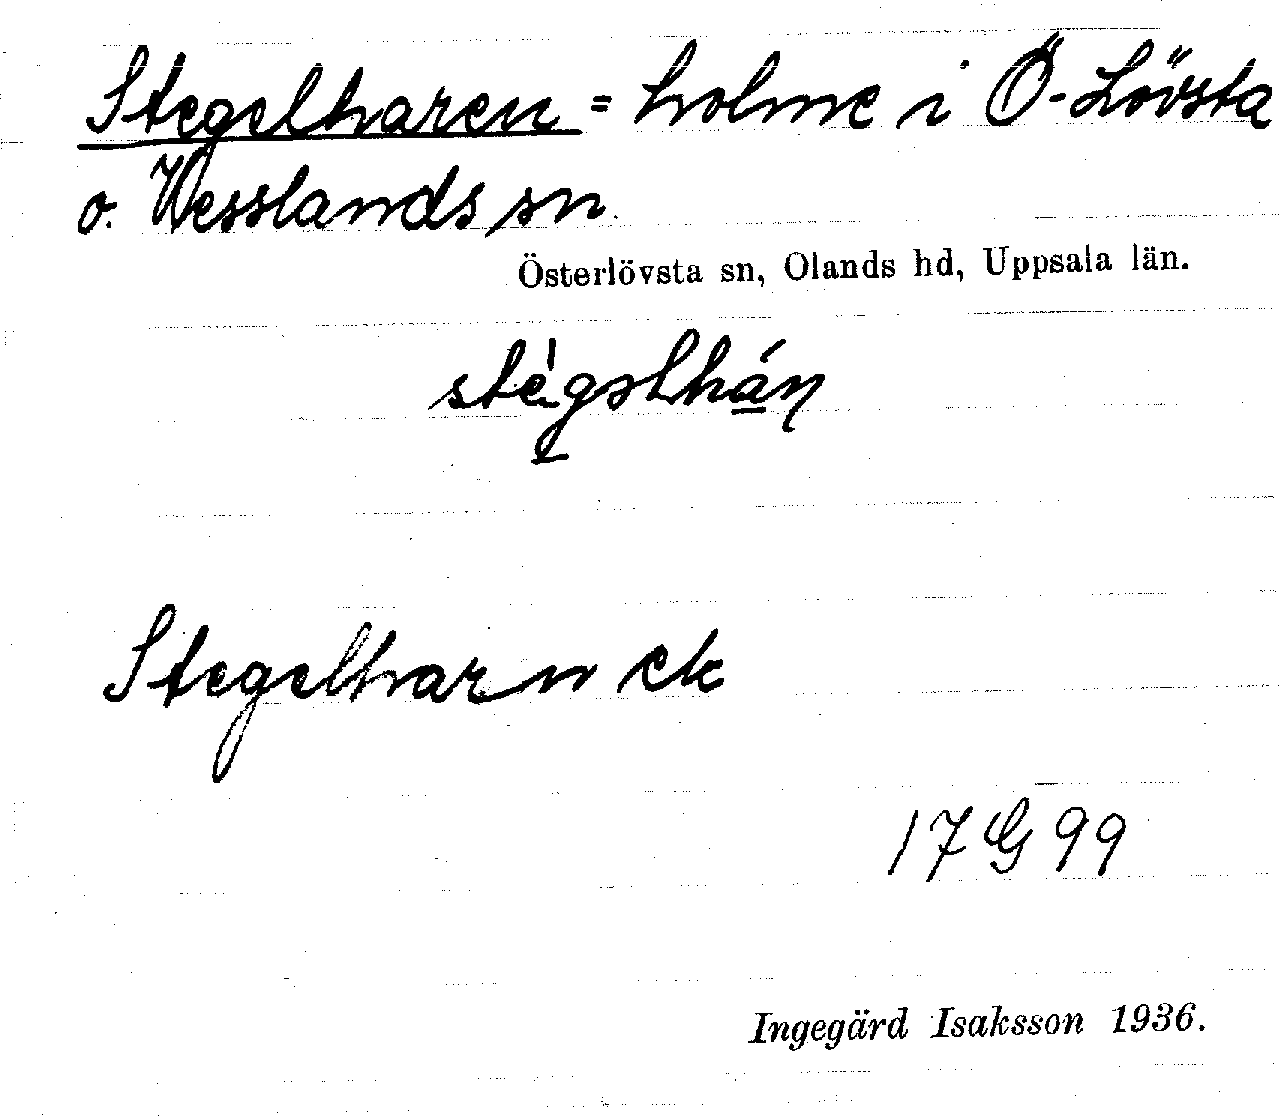 Stegelharen = holme i Ö-Lövsta
o. Wesslands sn.
Österlövsta sn, Olands hd, Uppsala län.
Stegelharn ek
17 G 99
Ingegärd Isaksson 1936.